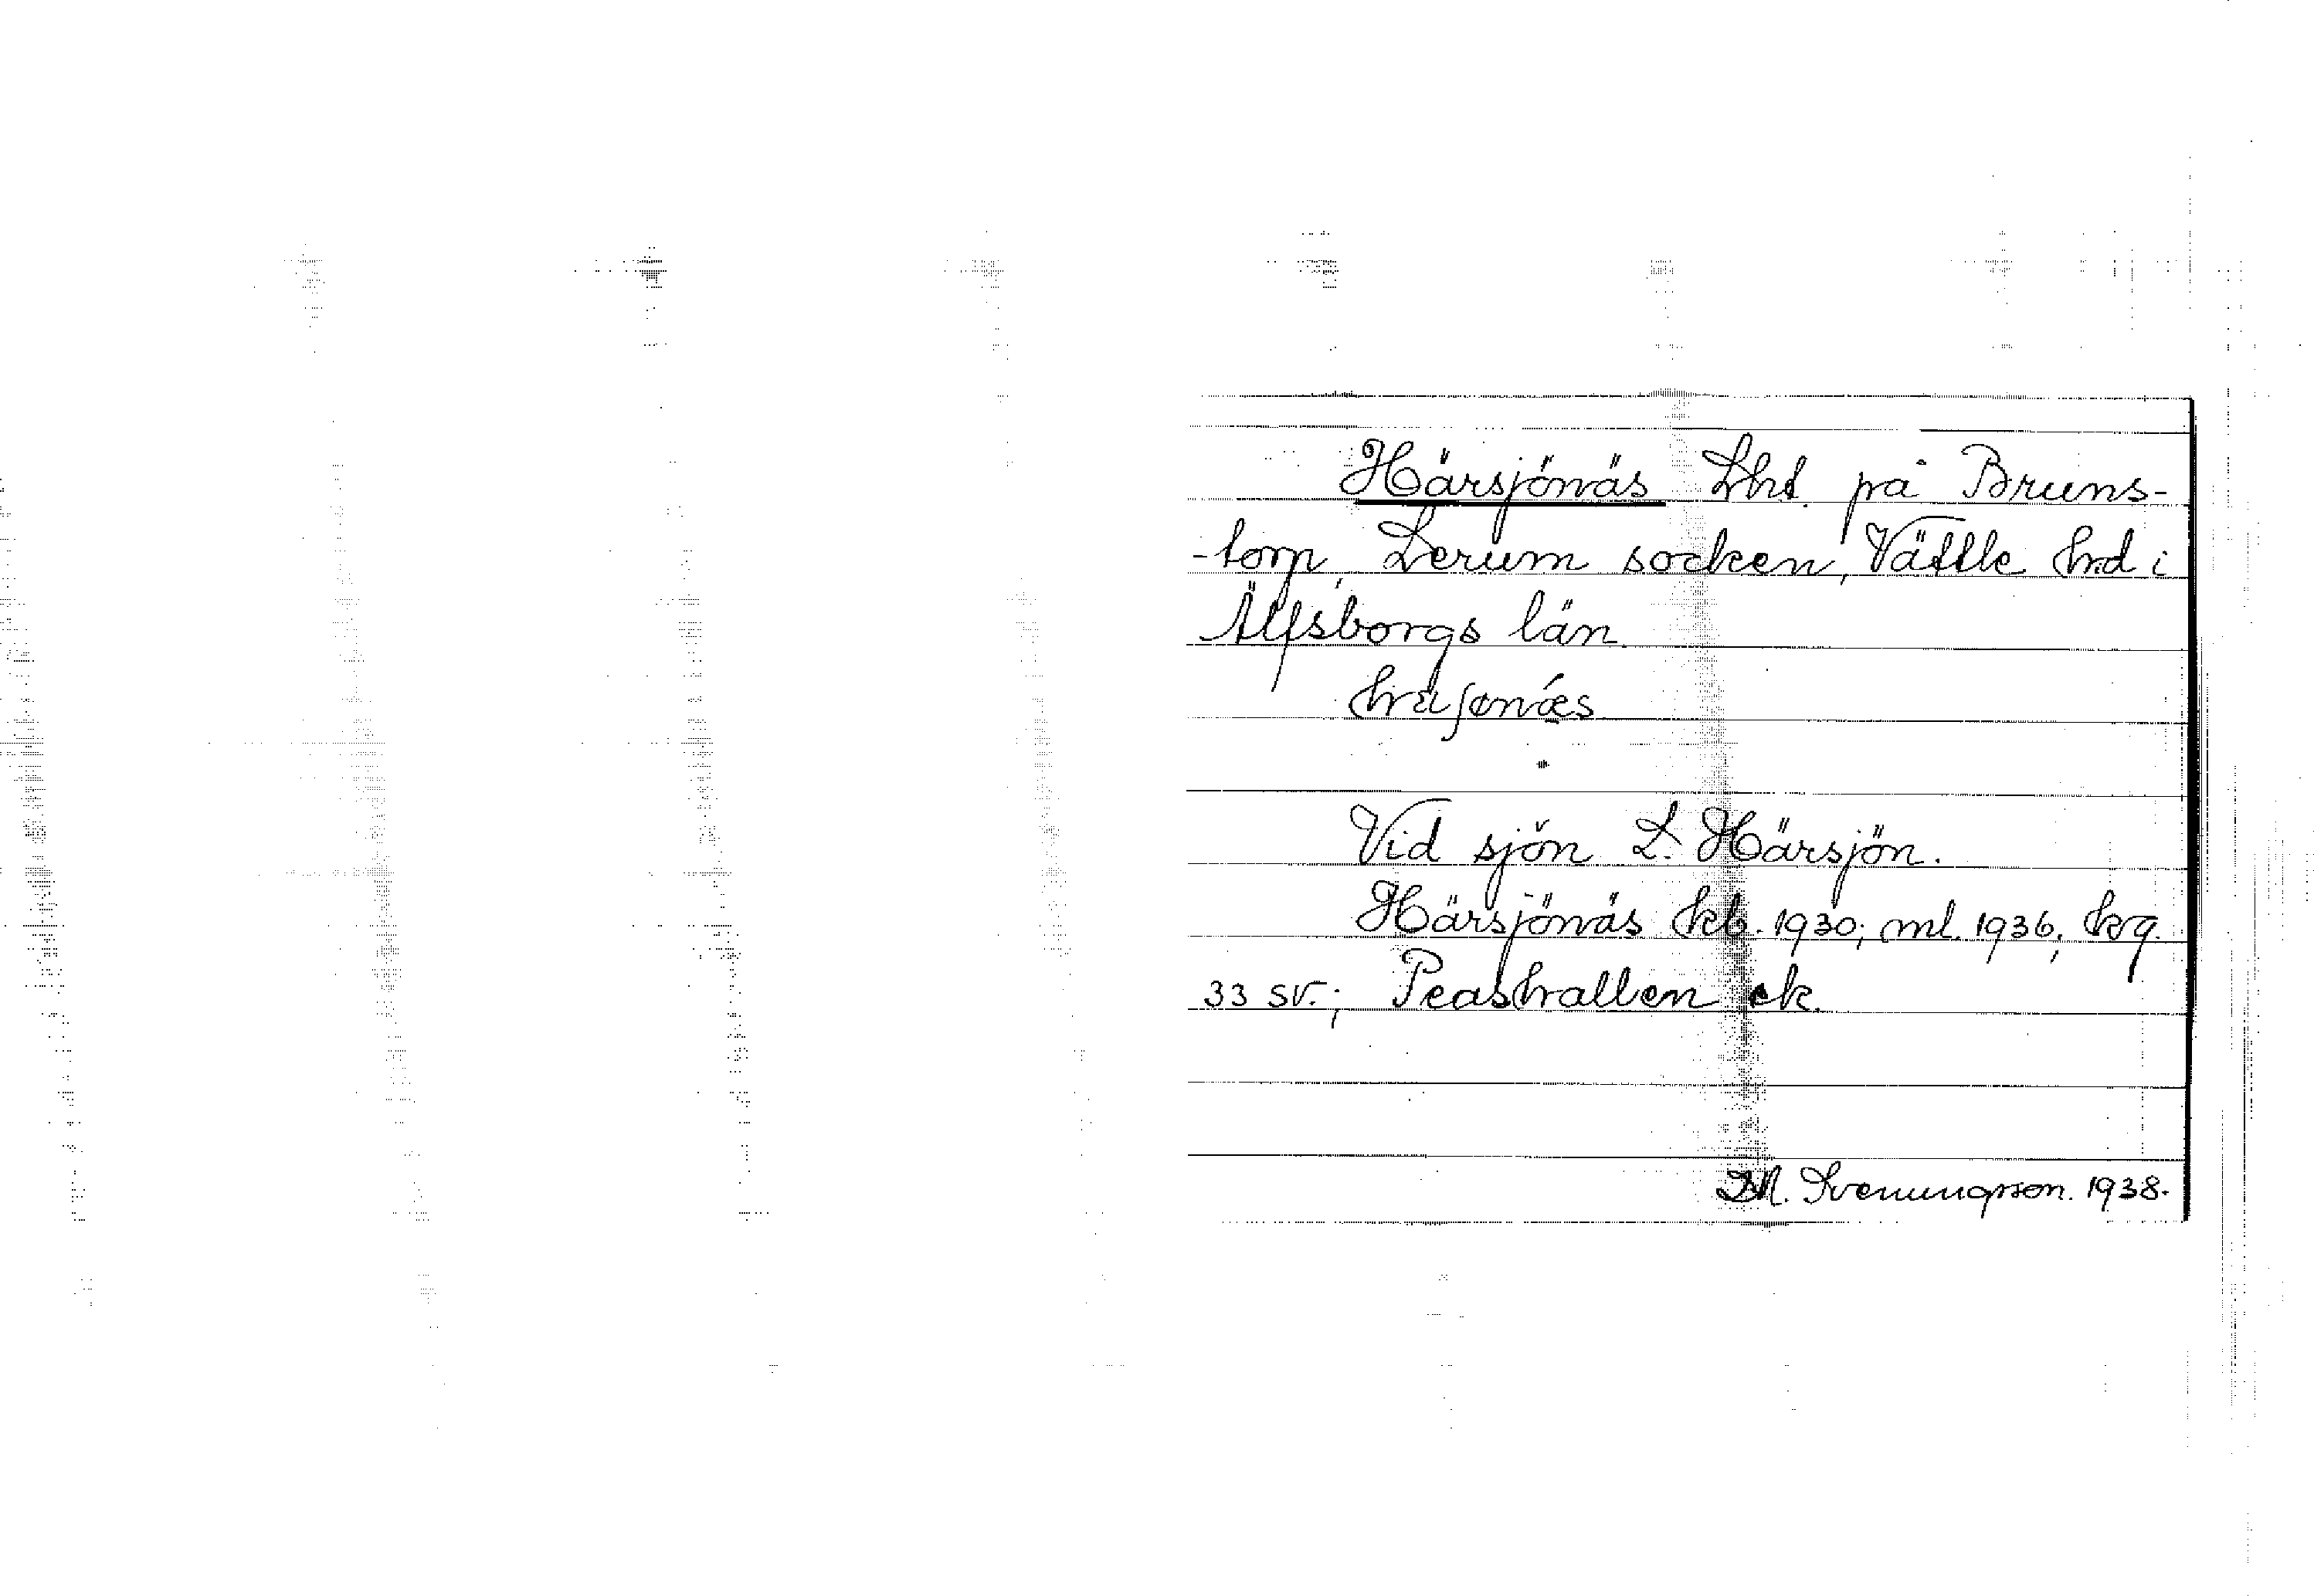 Härsjönäs Lht. på Bruns-
-torp, Lerum socken, Vättle hrd i
Älfsborgs län.
Vid sjön L. Härsjön.
Härsjönäs kb. 1930; ml. 1936, hrg.
33 sv.; Peashallen ek.
M. Svenungsson. 1938.